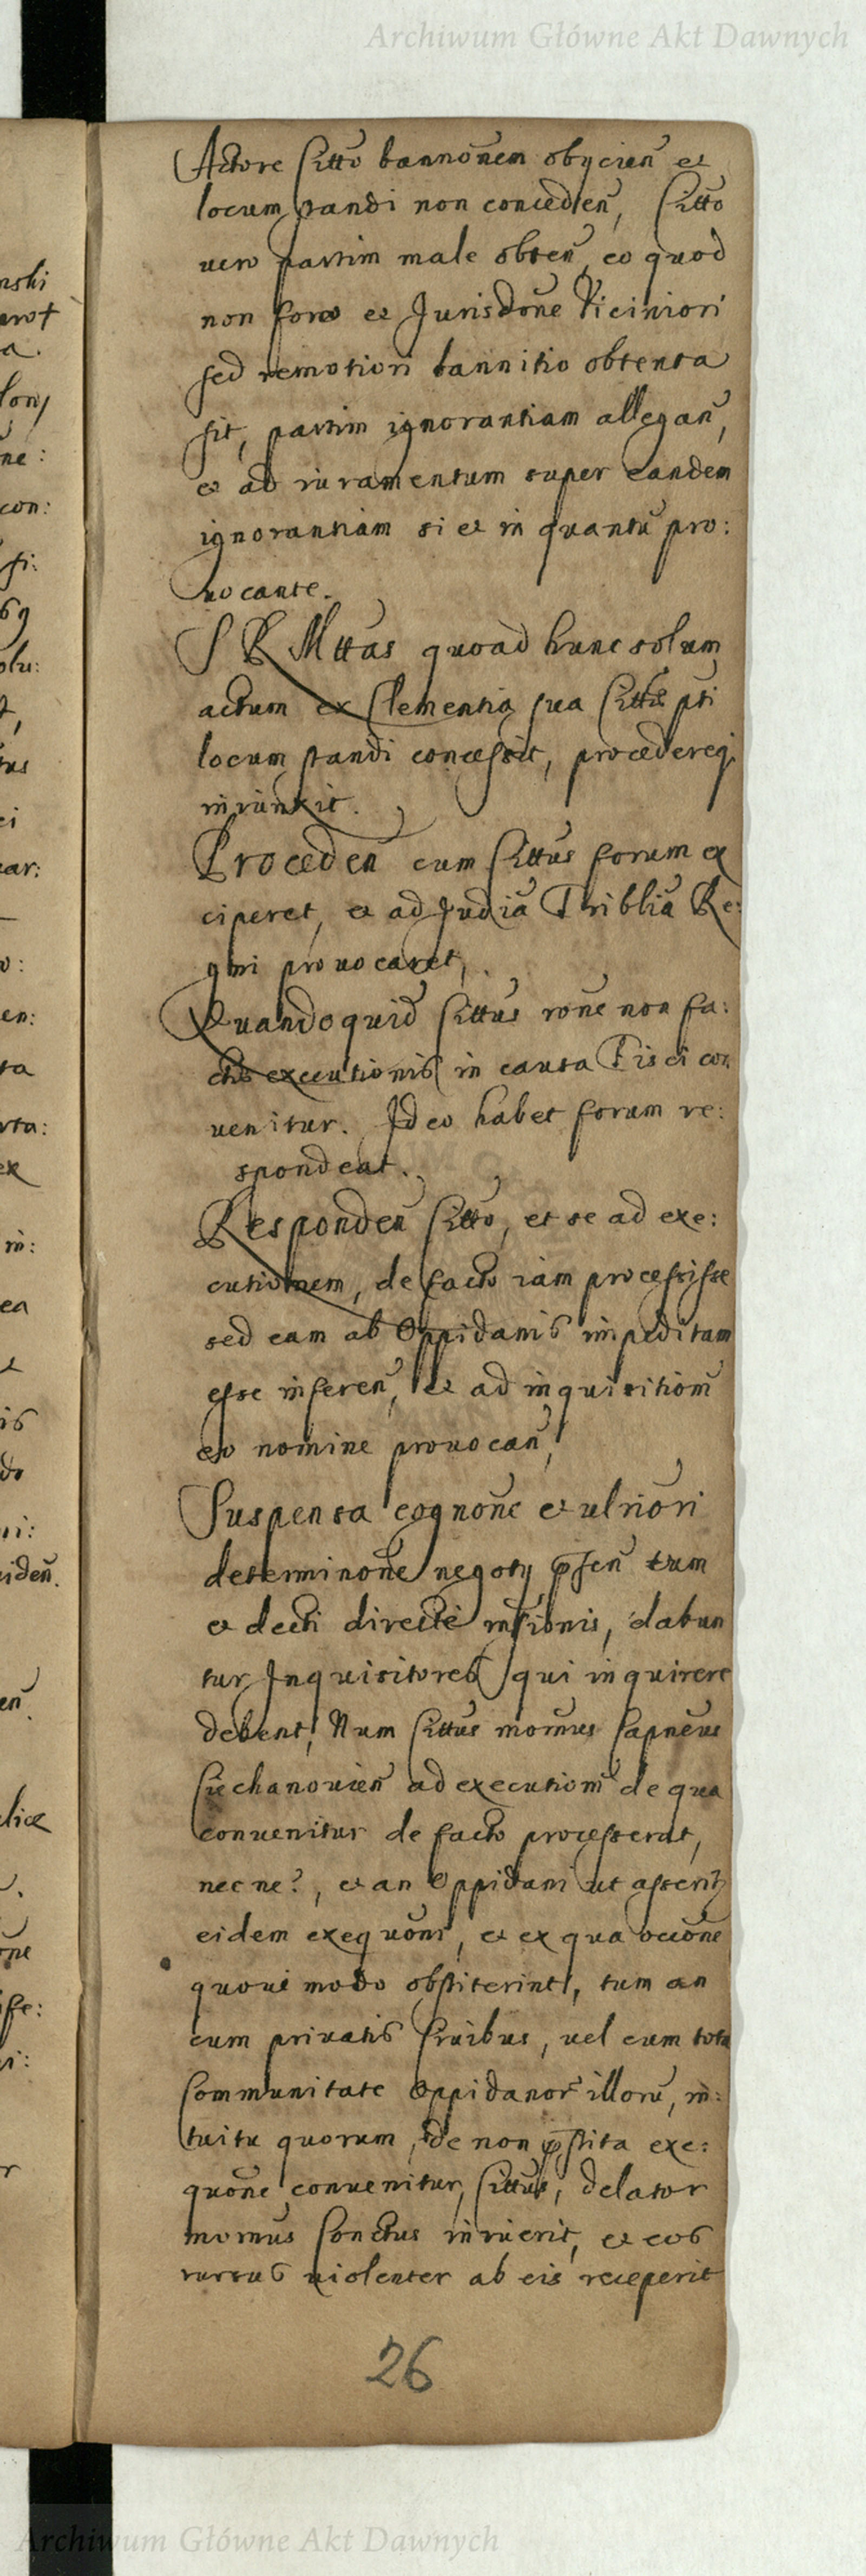 Archiwum Główne Akt Dawnych
Actore Citto bannonem obycien et
locum standi non conceden, Citto
vero partim male obten, eo quod
non foro et Jurisdone Viciniori
sed remotiori bannitio obtenta
sit, partim ignorantiam allegan,
et ad iuramentum super eandem
ignorantiam si et in quantu pro:
uocante.
S R Mttas quoad hunc solum
actum ex Clementia sua Citto pti
locum standi concessit, procedereq
iniunxit.
Proceden cum Cittus forum ex
ciperet, et ad Judia Thriblia Re:
gni prouocaret,
Quandoquid Cittus rone non fa:
ctae executionis in causa Fisci con
uenitur. Ideo habet forum re:
spondeat.
Responden Citto, et se ad exe:
cutionem, de facto iam processisse
sed eam ab Oppidanis impeditam
esse inferen, et ad inquisitiom
eo nomine prouocan,
Suspensa cognone et ulriori
determinone negoty psen tum
et decti directe insibnis, dabun
tur Inquisitores qui inquirere
debent, Num Cittus mornus Capneus
Ciechanouien ad executiom de qua
conuenitur de facto processerat,
nec ne?, et an Oppidani ut asserit
eidem exequoni, et ex qua occone
quoui modo obstiterint, tum an
cum priuatis Ciuibus, uel cum tota
Communitate Oppidanor illoru, in:
tuitu quorum, de non pstita exe:
quone conuenitur, Cittus, delator
mornus Conctus inierit, et eos
rursus violenter ab eis receperit
26
Archiwum Główne Akt Dawnych